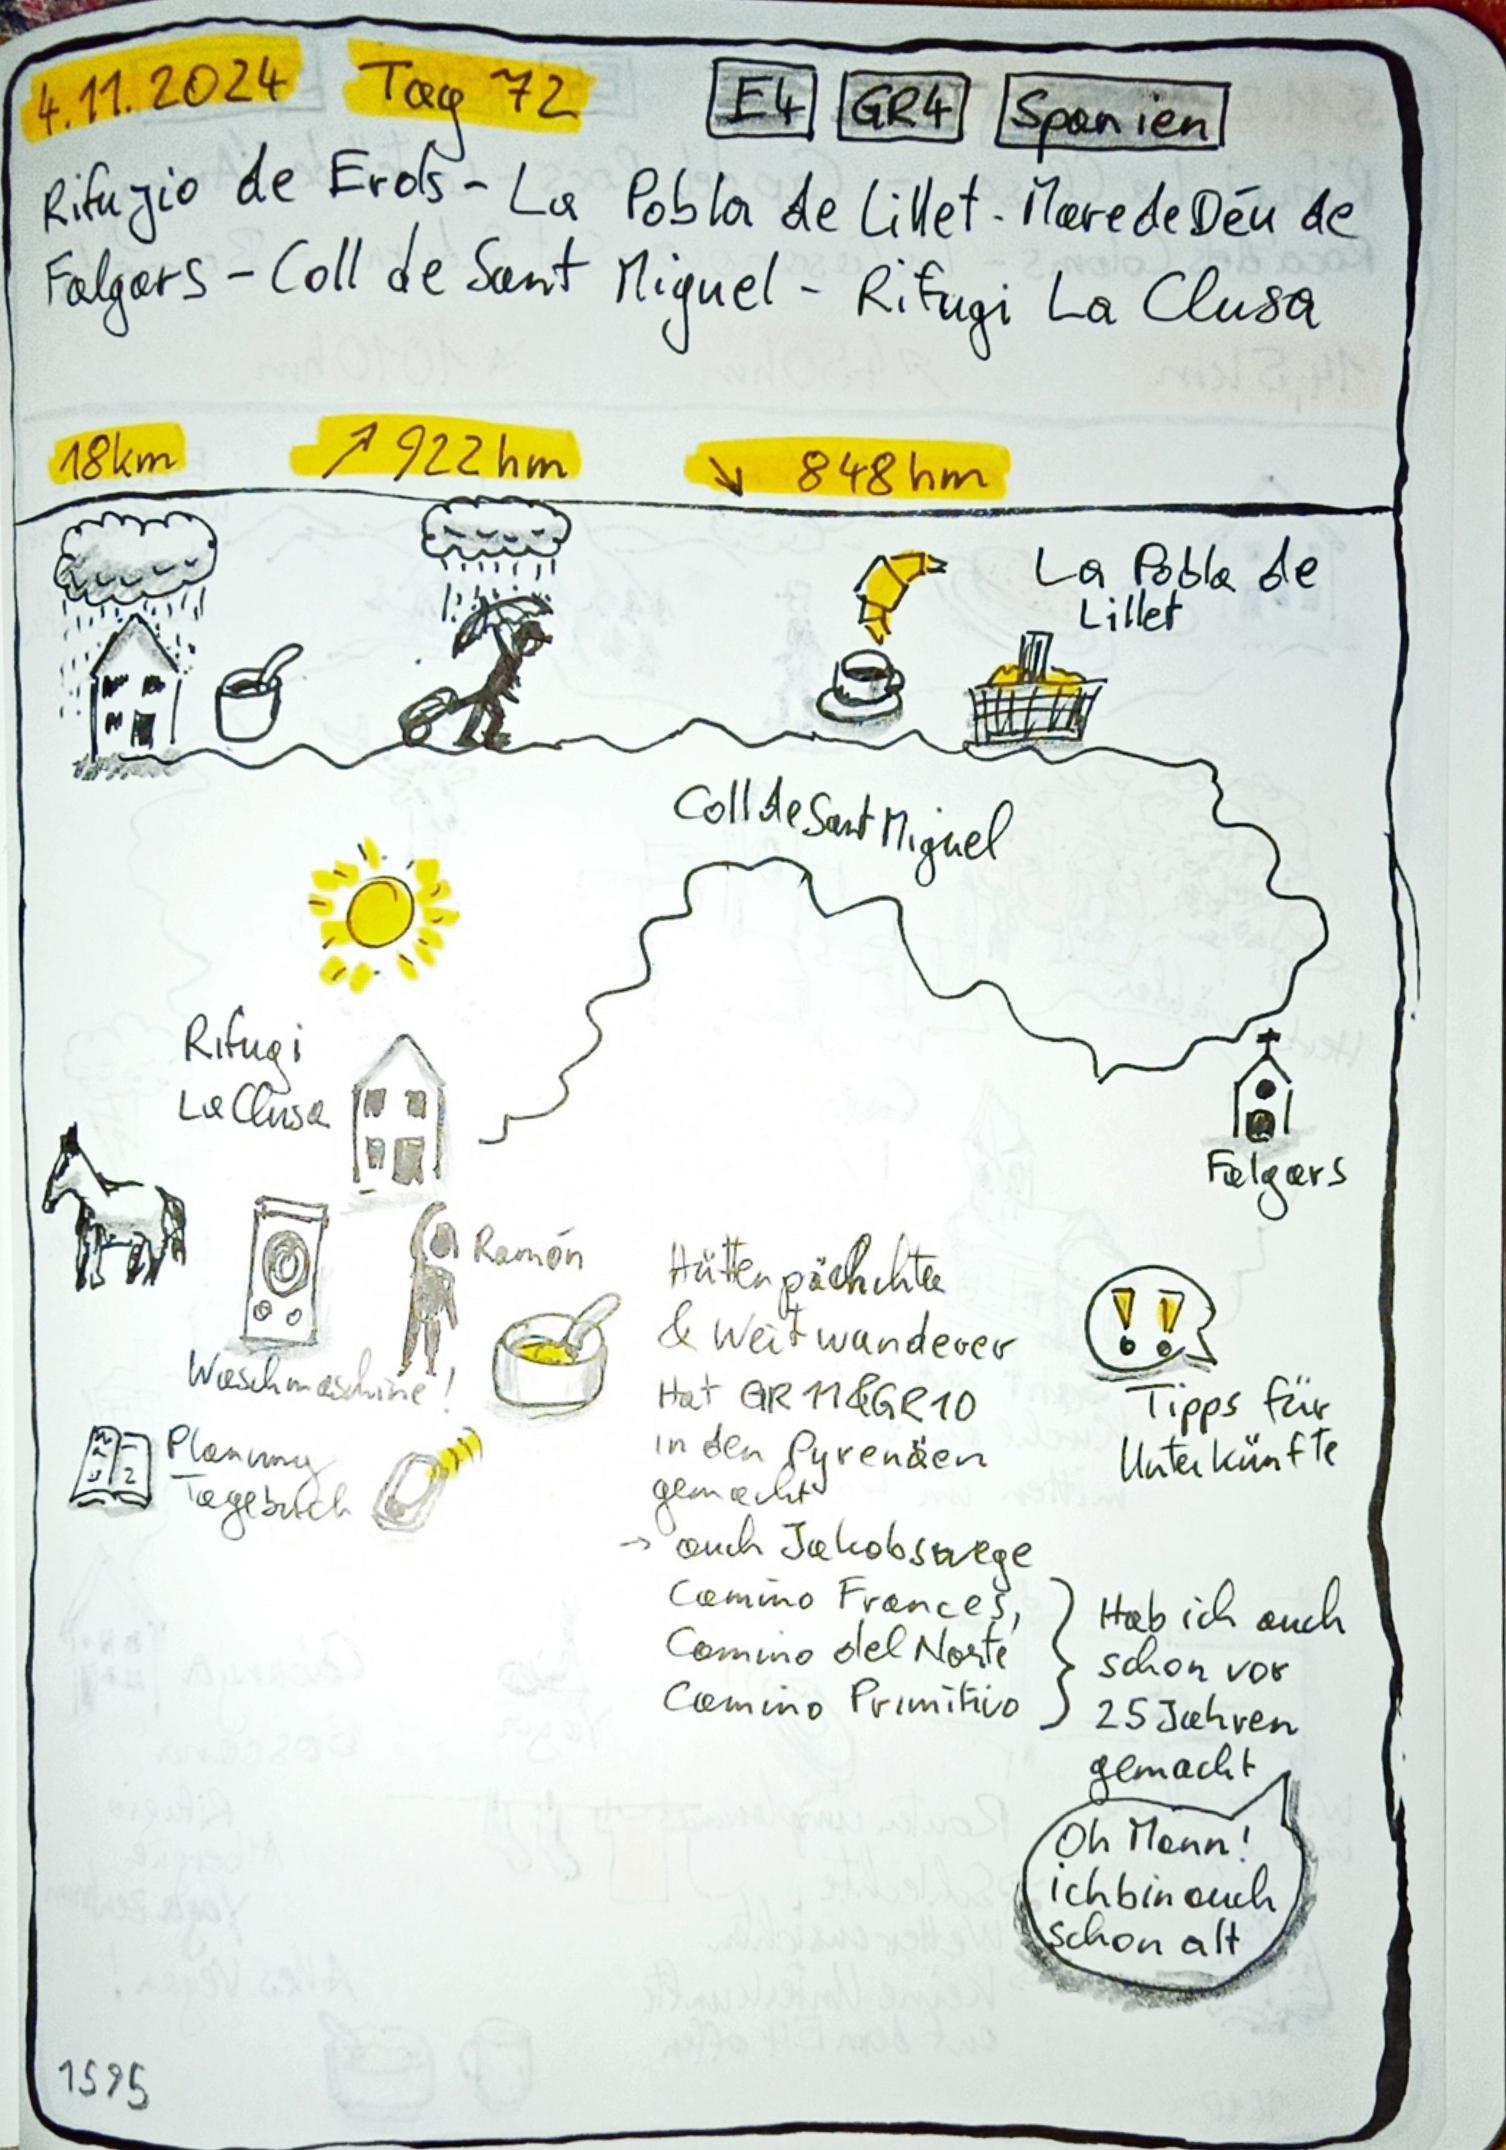 4.11.2024 Tag 72 E4 GR4 Spanien
Rifugio de Erols - La Pobla de Lillet - Mare de Déu de
Falgars - Coll de Sant Miguel - Rifugi La Clusa
18km ↗ 922hm ↘ 848hm
La Pobla de
Lillet
Coll de Sant Miguel
Rifugi
La Clusa
Falgars
Ramón
Waschmaschine!
Planung
Tagebuch
Hüttenpächter
& Weitwanderer
Hat GR11&GR10
in den Pyrenäen
gemacht
→ auch Jakobswege
Camino Frances,
Camino del Norte
Camino Primitivo
Tipps für
Unterkünfte
Hab ich auch
schon vor
25 Jahren
gemacht
Oh Mann!
ich bin auch
schon alt
1595